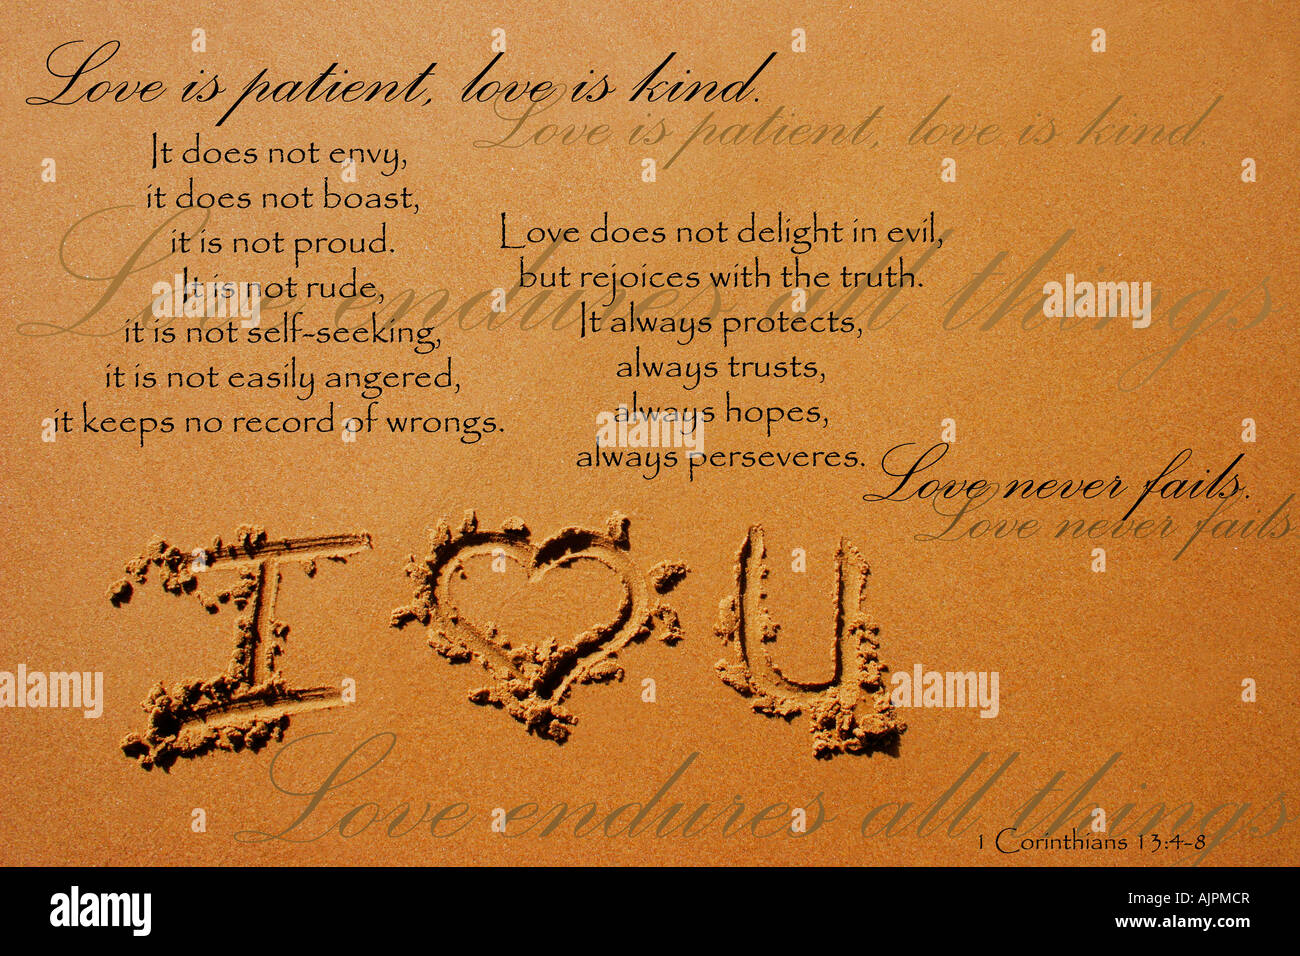 Love is patient, love is kind.
Love is patient, love is kind.
It does not envy,
it does not boast,
it is not proud.
It is not rude,
it is not self-seeking,
it is not easily angered,
it keeps no record of wrongs.
Love endures all things
Love does not delight in evil,
but rejoices with the truth.
It always protects,
always trusts,
always hopes,
always perseveres.
Love never fails.
Love never fails
I ♥ U
Love endures all things
1 Corinthians 13:4-8
a
alamy
alamy
Image ID: AJPMCR
www.alamy.com